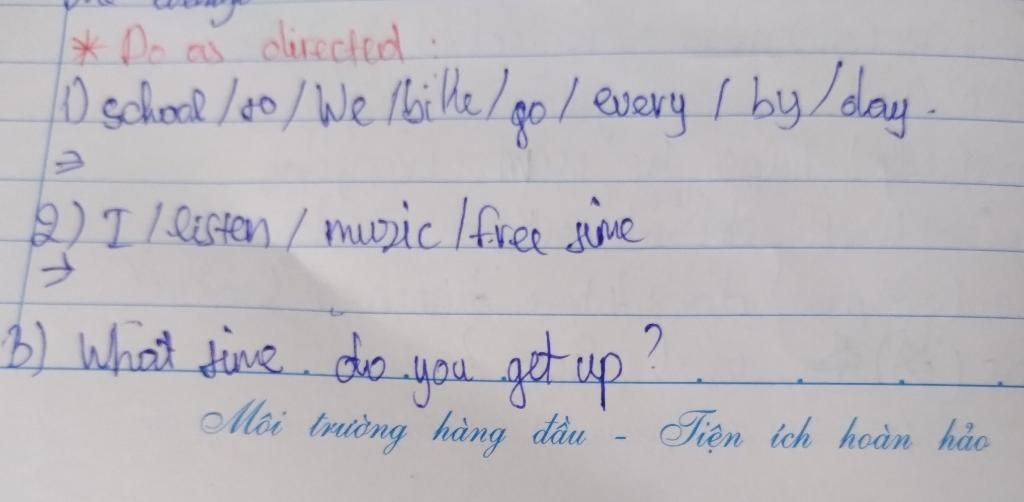 * Do as directed :
1) school / to / We / bike / go / every / by / day .
⇒
2) I / listen / muzic / free time
⇒
3) What time do you get up ?
Môi trường hàng đầu - Tiện ích hoàn hảo